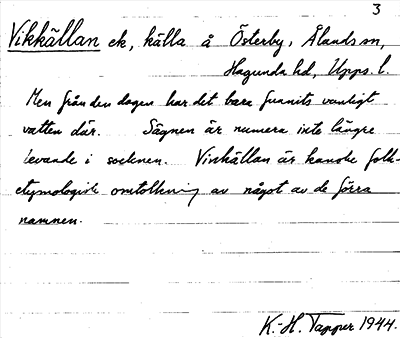 3
Vikkällan ek, källa å Österby, Ålands sn,
Hagunda hd, Upps. l.
Men från den dagen har det bara funnits vanligt
vatten där. Sägnen är numera inte längre
levande i socknen. Vinkällan är kanske folk-
etymologisk omtolkning av något av de förra
namnen.
K.-H. Tapper 1944.